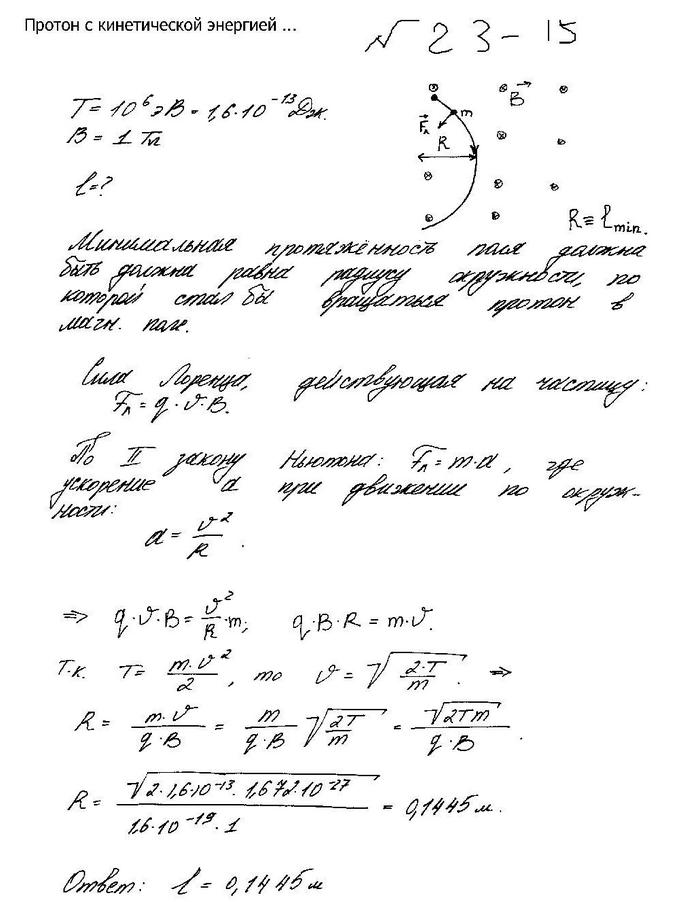 Протон с кинетической энергией ...
№ 23-15
T = 10⁶ эВ = 1,6·10⁻¹³ Дж.
B = 1 Тл
l = ?
B⃗
m
F⃗л
R
R ≡ lmin.
Минимальная протяжённость поля должна
быть должна равна радиусу окружности, по
которой стал бы вращаться протон в
магн. поле.
Сила Лоренца, действующая на частицу:
Fл = q·v·B.
По II закону Ньютона: Fл = m·a, где
ускорение a при движении по окруж-
ности:
a = v²/R.
⇒ q·v·B = v²/R·m; q·B·R = m·v.
Т.к. T = m·v²/2, то v = √(2·T/m). ⇒
R = m·v/(q·B) = m/(q·B) √(2T/m) = √(2Tm)/(q·B).
R = √(2·1,6·10⁻¹³·1,672·10⁻²⁷)/(1,6·10⁻¹⁹·1) = 0,1445 м.
Ответ: l = 0,1445 м